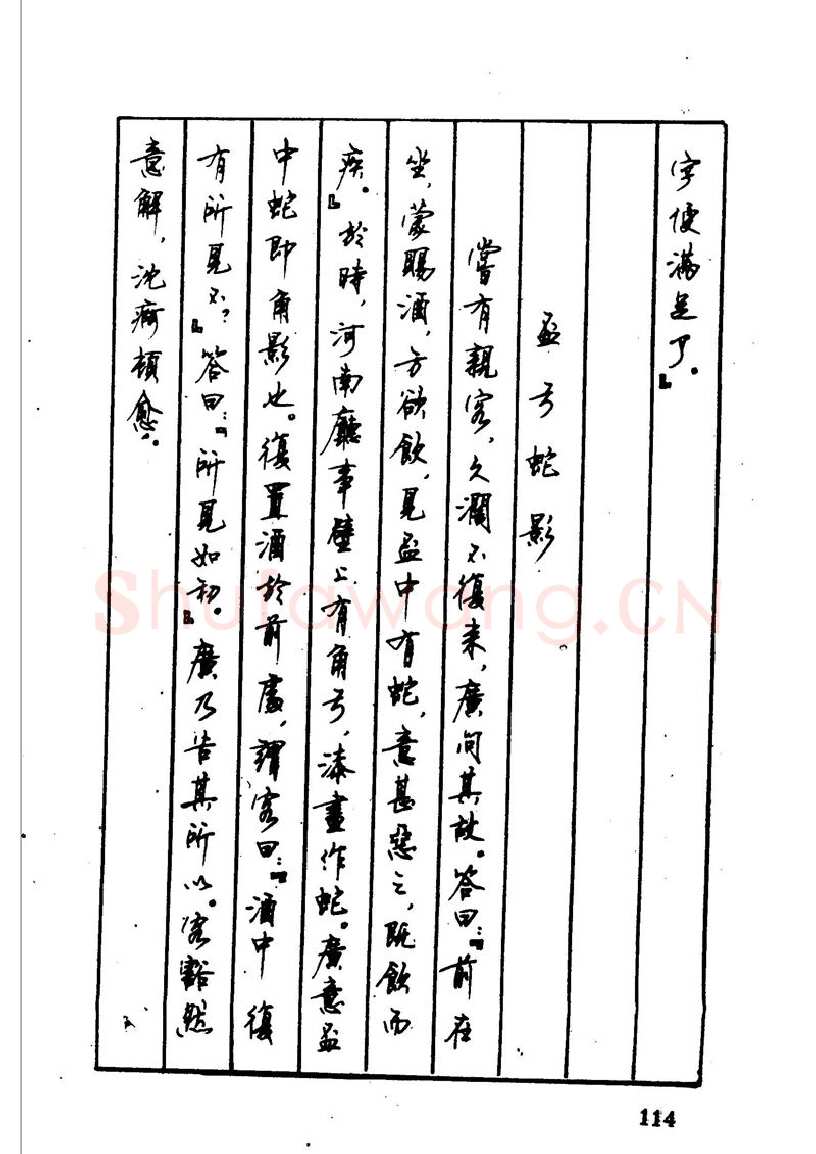 字便滿足了。』
盃弓蛇影
嘗有親客，久濶不復来，廣问其故。答曰：『前在
坐，蒙賜酒，方欲飲，見盃中有蛇，意甚惡之，既飲而
疾。』於時，河南廳事壁上有角弓，漆畫作蛇。廣意盃
中蛇即角影也。復置酒於前處，謂客曰：『酒中復
有所見不？』答曰：『所見如初。』廣乃告其所以。客豁然
意解，沈痾頓愈。
Shufawang.CN
114